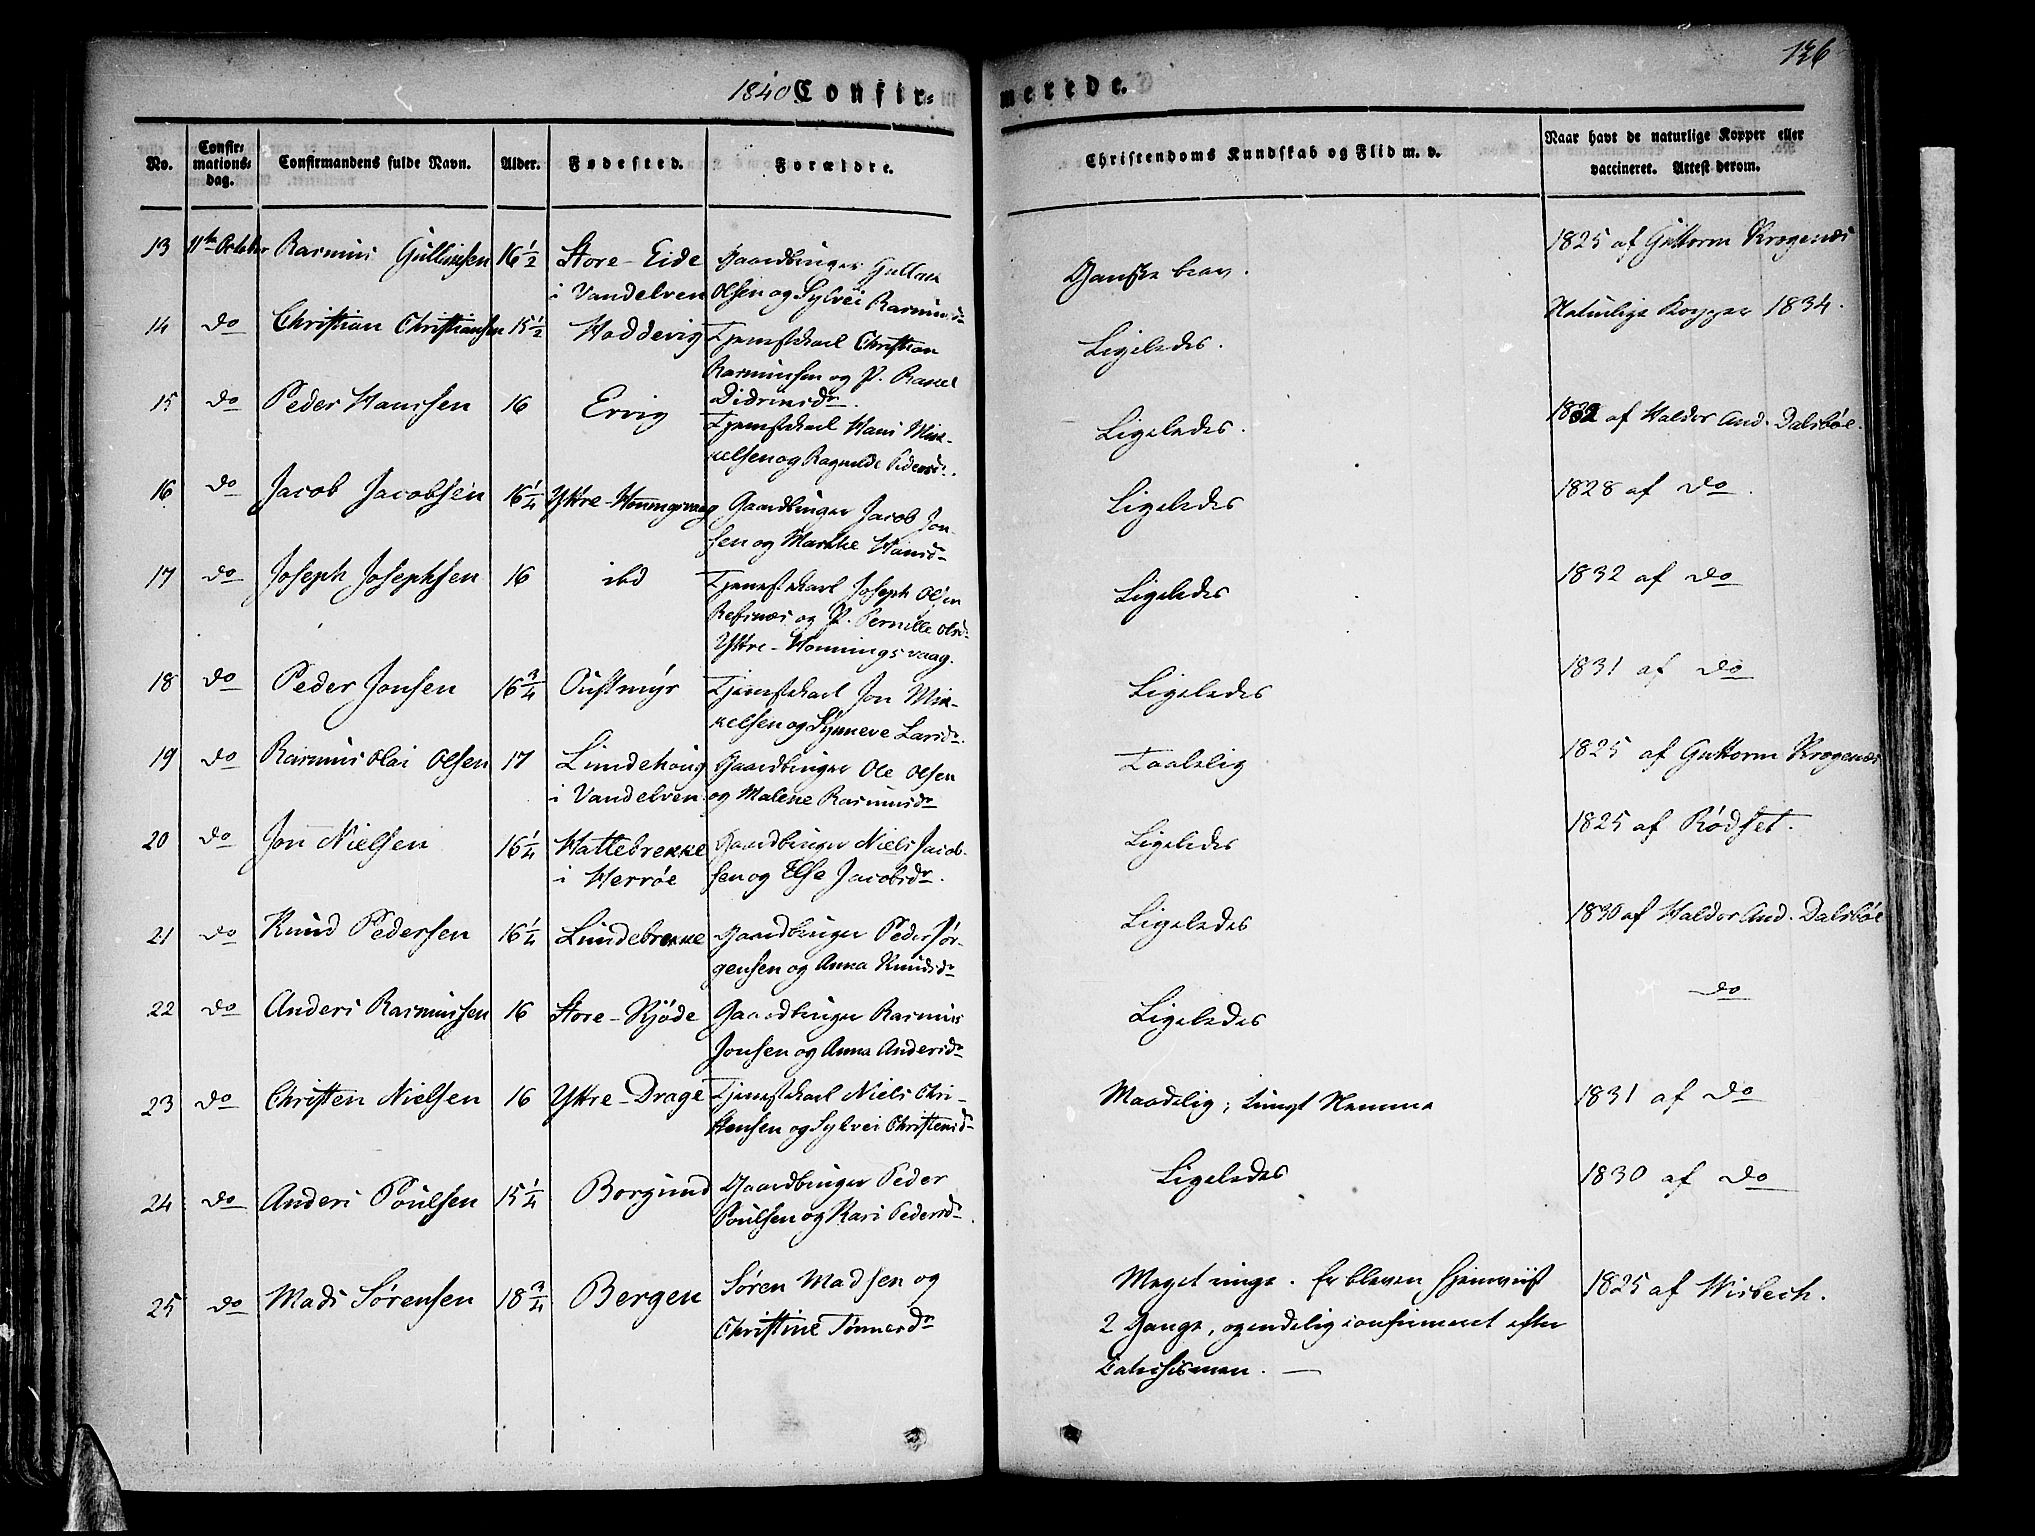 136
1840 Confir-
merede.
No.
Confir-
mations-
dag.
Confirmandens fulde Navn.
Alder.
Fødested.
Forældre.
Christendoms Kundskab og Flid m. v.
Naar havt de naturlige Kopper eller
vaccineret. Attest derom.
13 11te October Rasmus Gullaksen 16½ Store-Eide Gaardbruger Gullak
i Vandelven Olsen og Sylvei Rasmusdr
Ganske brav.
1825 af Guttorm Krogenæs
14 do Christian Christiansen 15½ Hoddevig Tjenestekarl Christian
Rasmussen og P. Rakel
Didriksdr.
Ligeledes.
Naturlige Kopper 1834.
15 do Peder Hansen 16 Ervig Tjenestekarl Hans Mik-
kelsen og Ragnilde Pedersdr.
Ligeledes.
1832 af Haldor And. Dalsbøe.
16 do Jacob Jacobsen 16¼ Yttre-Honningsvaag Gaardbruger Jacob Jon-
sen og Marthe Hansdr
Ligeledes
1828 af do.
17 do Joseph Josephsen 16 ibd Tjenestekarl Joseph Olsen
Refsnæs og P. Pernille Olsdr
Yttre-Honningsvaag.
Ligeledes
1832 af do
18 do Peder Jonsen 16¾ Oustmyr Tjenestekarl Jon Mik-
kelsen og Synneve Larsdr.
Ligeledes
1831 af do
19 do Rasmus Olai Olsen 17 Lundehoug Gaardbruger Ole Olsen
i Vandelven og Malene Rasmusdr
Taalelig
1825 af Guttorm Krogenæs
20 do Jon Nielsen 16¼ Hattebrekke Gaardbruger Niels Jacob-
i Herrøe sen og Else Jacobsdr.
Ligeledes
1825 af Rødset.
21 do Knud Pedersen 16¼ Lundebrekke Gaardbruger Peder Jør-
gensen og Anna Knudsdr
Ligeledes
1830 af Haldor And. Dalsbøe
22 do Anders Rasmussen 16 Store-Skjøde Gaardbruger Rasmus
Jonsen og Anna Andersdr
Ligeledes
do
23 do Christen Nielsen 16 Yttre-Drage Tjenestekarl Niels Chri-
stensen og Sylvei Christensdr
Maadelig; tungt Nemme
1831 af do
24 do Anders Poulsen 15¼ Borgund Gaardbruger Peder
Poulsen og Kari Pedersdr.
Ligeledes
1830 af do
25 do Mads Sørensen 18¾ Bergen Søren Madsen og
Christine Tønnesdr
Meget ringe. Er bleven hjemviist
2 Gange, og endelig confirmeret efter
Catechismen. —
1825 af Wisbech.